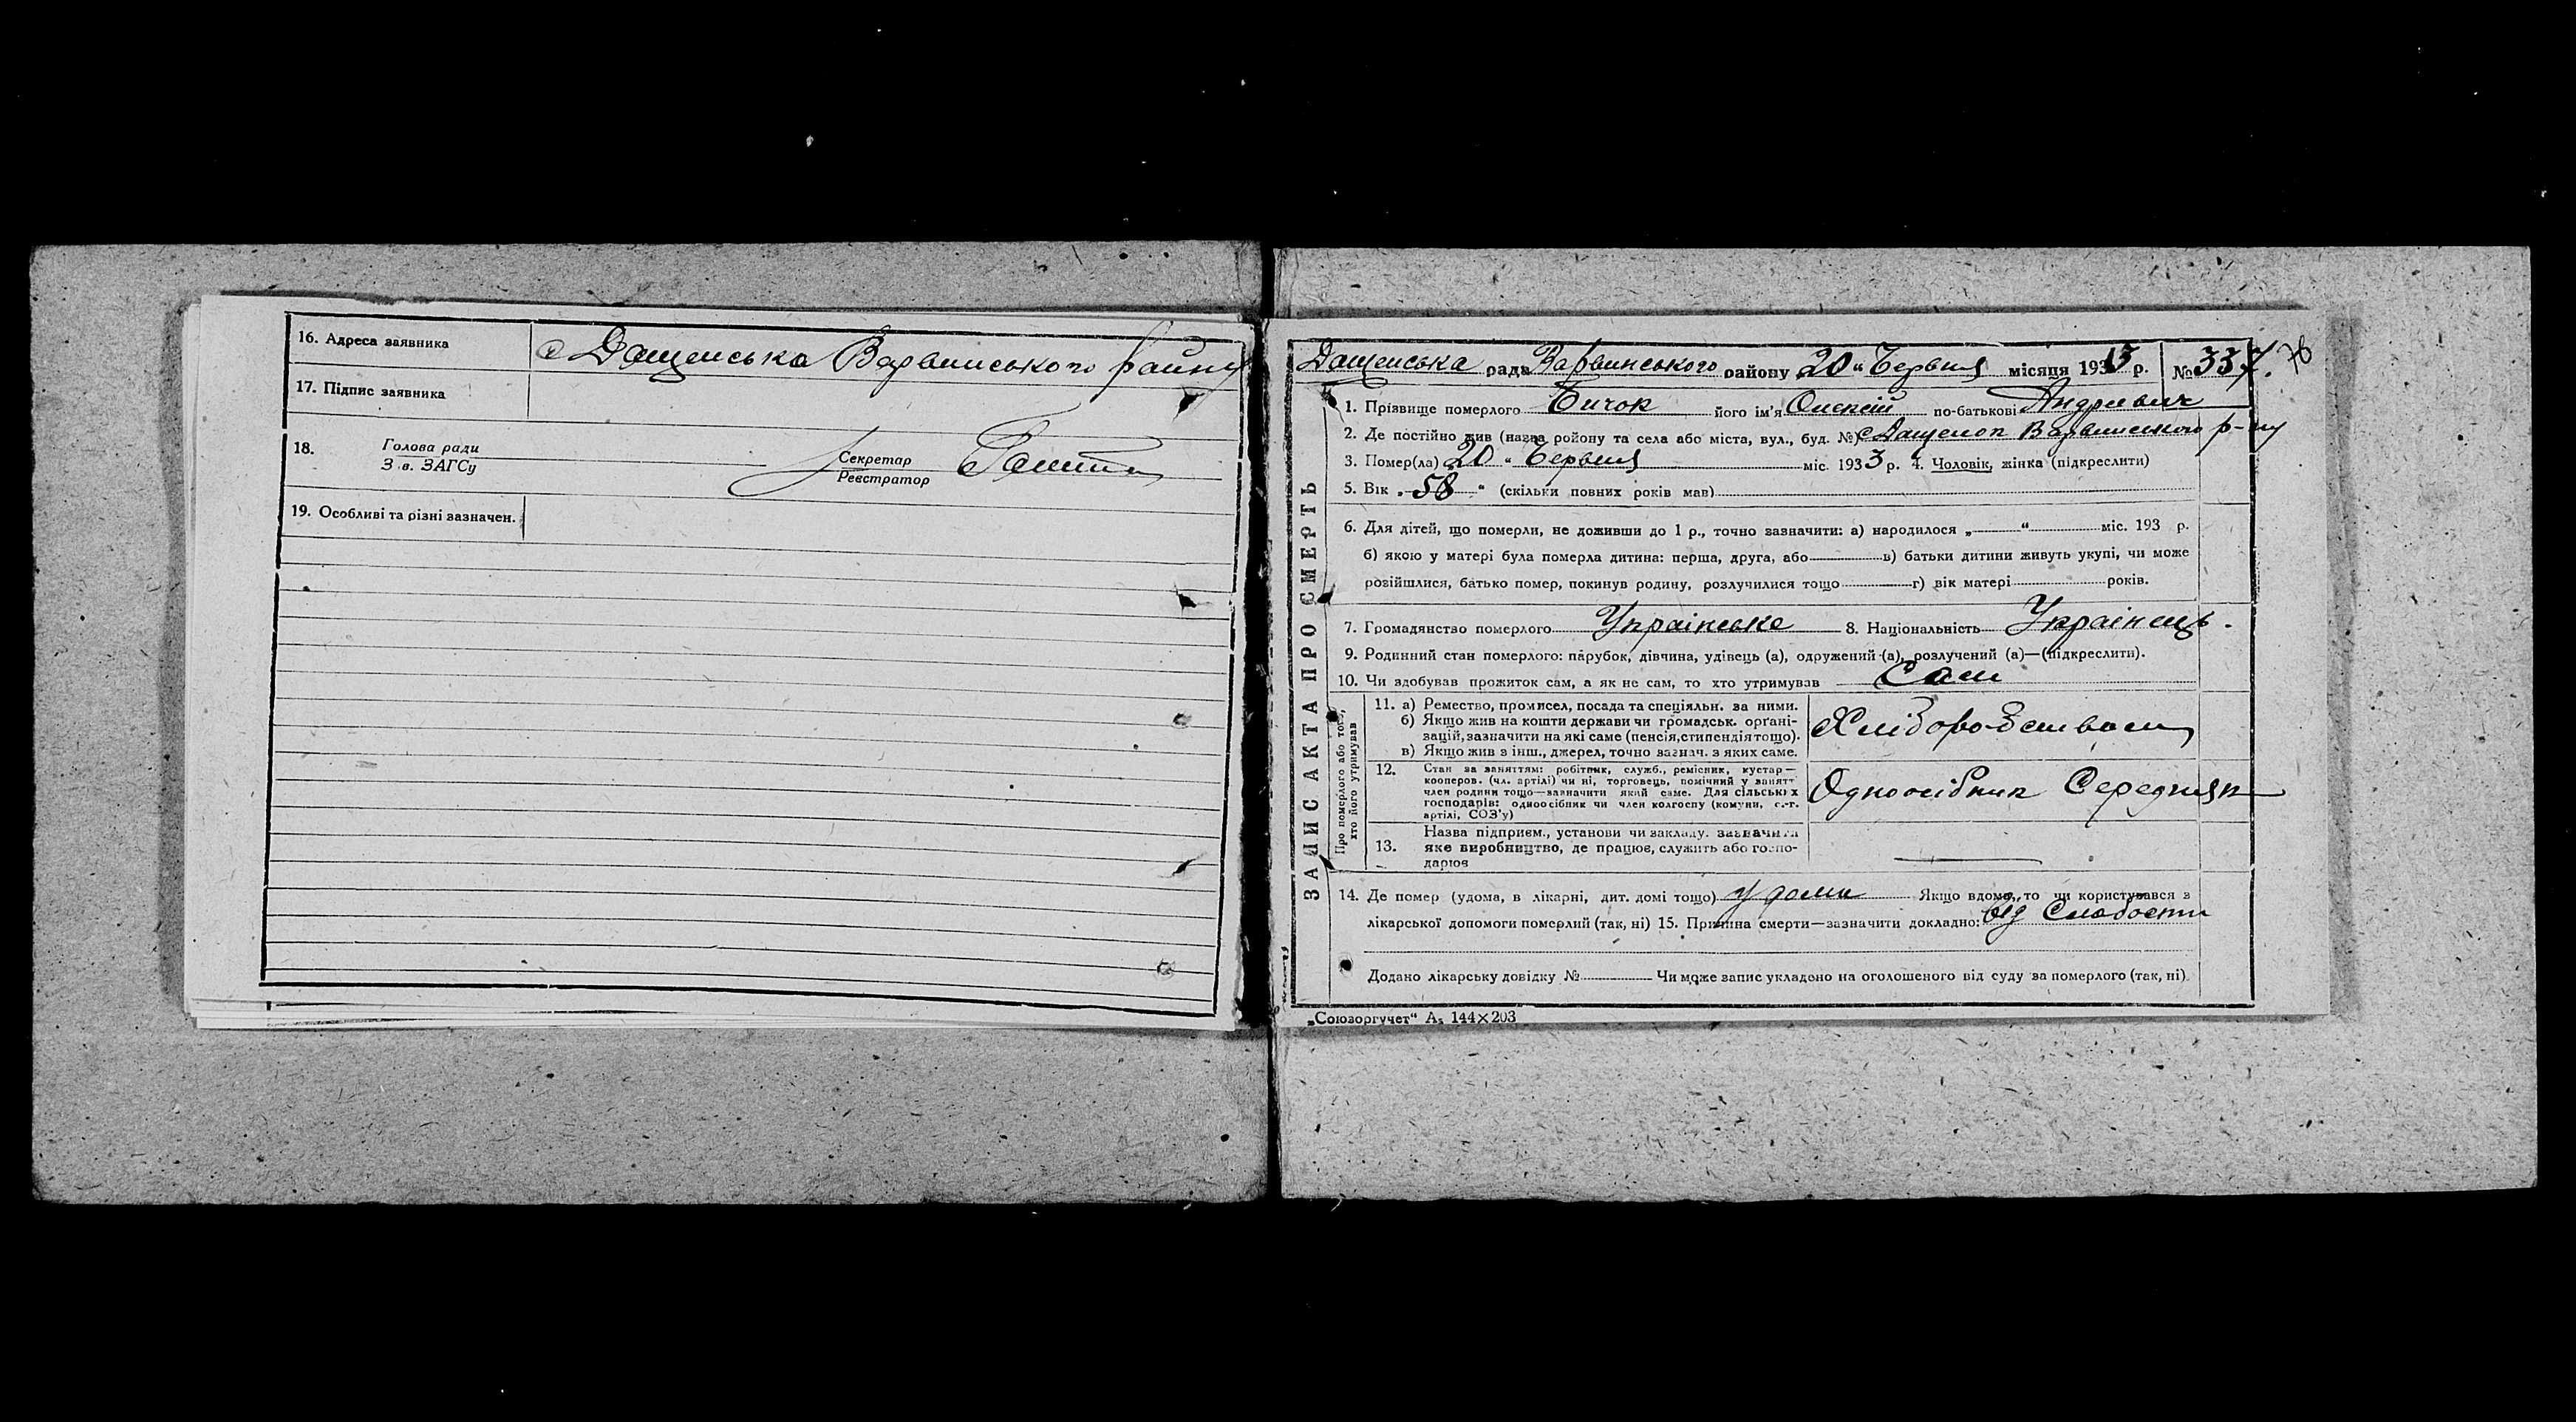 16. Адреса заявника с Дащенська Варвинського району
17. Підпис заявника
18. Голова ради
З в. ЗАГСу
Секретар
Реєстратор
19. Особливі та різні зазначен.
Дащенська рада Варвинського району 20 " Червня місяця 1933 р. № 337. 78
ЗАПИС АКТА ПРО СМЕРТЬ
1. Прізвище померлого Бичок його ім'я Олексій по-батькові Андрієвич
2. Де постійно жив (назва ройону та села або міста, вул., буд. №) с Дащенок Варвинського р-ну
3. Помер(ла) 20 " Червня міс. 1933 р. 4. Чоловік, жінка (підкреслити)
5. Вік „ 58 " (скільки повних років мав)
6. Для дітей, що померли, не доживши до 1 р., точно зазначити: а) народилося „ " міс. 193 р.
б) якою у матері була померла дитина: перша, друга, або в) батьки дитини живуть укупі, чи може
розійшлися, батько помер, покинув родину, розлучилися тощо г) вік матері років.
7. Громадянство померлого Українське 8. Національність Українець.
9. Родинний стан померлого: парубок, дівчина, удівець (а), одружений (а), розлучений (а)—(підкреслити).
10. Чи здобував прожиток сам, а як не сам, то хто утримував Сам
Про померлого або того, хто його утримував
11. а) Ремество, промисел, посада та спеціяльн. за ними.
б) Якщо жив на кошти держави чи громадськ. органі-
зацій, зазначити на які саме (пенсія, стипендія тощо).
в) Якщо жив з інш., джерел, точно зазнач. з яких саме.
Хліборобством
12. Стан за заняттям: робітник, служб., ремісник, кустар—
кооперов. (чл. артілі) чи ні, торговець, помічний у занятт
член родини тощо—зазначити який саме. Для сільських
господарів: одноосібник чи член колгоспу (комуни, с.-г.
артілі, СОЗ'у)
Одноосібник Середняк
13. Назва підприєм., установи чи закладу. зазначити
яке виробництво, де працює, служить або госпо-
дарює
14. Де помер (удома, в лікарні, дит. домі тощо) у доми Якщо вдома, то чи користувався з
лікарської допомоги померлий (так, ні) 15. Причина смерти—зазначити докладно: від Слабости
Додано лікарську довідку № Чи може запис укладено на оголошеного від суду за померлого (так, ні).
„Союзоргучет" А₅ 144×203